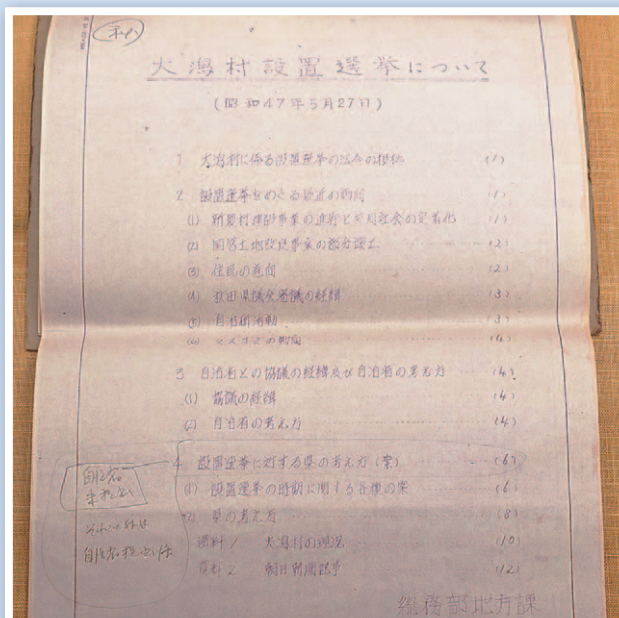 大潟村設置選挙について
(昭和47年5月27日)
1 大潟村に係る設置選挙の法令の根拠 (1)
2 設置選挙をめぐる最近の動向 (1)
(1) 新農村建設事業の進行と 社会の定着化 (1)
(2) 国営土地改良事業の部分竣工 (2)
(3) 住民の意向 (2)
(4) 秋田県議会審議の経緯 (3)
(5) 自治研活動 (3)
(6) マスコミの動向 (4)
3 自治省との協議の経緯及び自治省の考え方 (4)
(1) 協議の経緯 (4)
(2) 自治省の考え方 (4)
4 設置選挙に対する県の考え方(案) (6)
(1) 設置選挙の時期に関する各種の案 (6)
(2) 県の考え方 (8)
資料1 大潟村の現況 (10)
資料2 朝日新聞記事 (12)
自治省
それ以外は
自治省提出済
総務部地方課